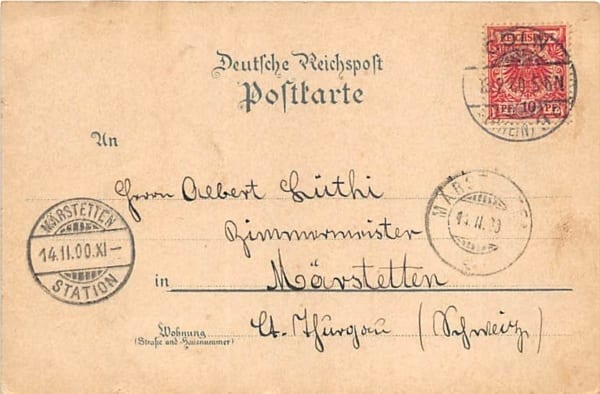 Deutsche Reichspost
Postkarte
REICHSPOST
PF 10 PF
An
Herrn Albert Lüthi
Zimmermeister
in Märstetten
Ct. Thurgau (Schweiz)
Wohnung
(Straße und Hausnummer)
MÄRSTETTEN
14.II.00.XI–
STATION
MÄRSTETTEN
14.II.00